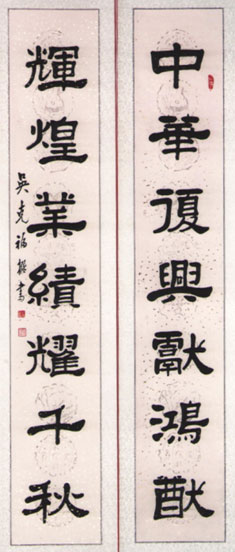 中華復興獻鴻猷
輝煌業績耀千秋
吳克福撰書